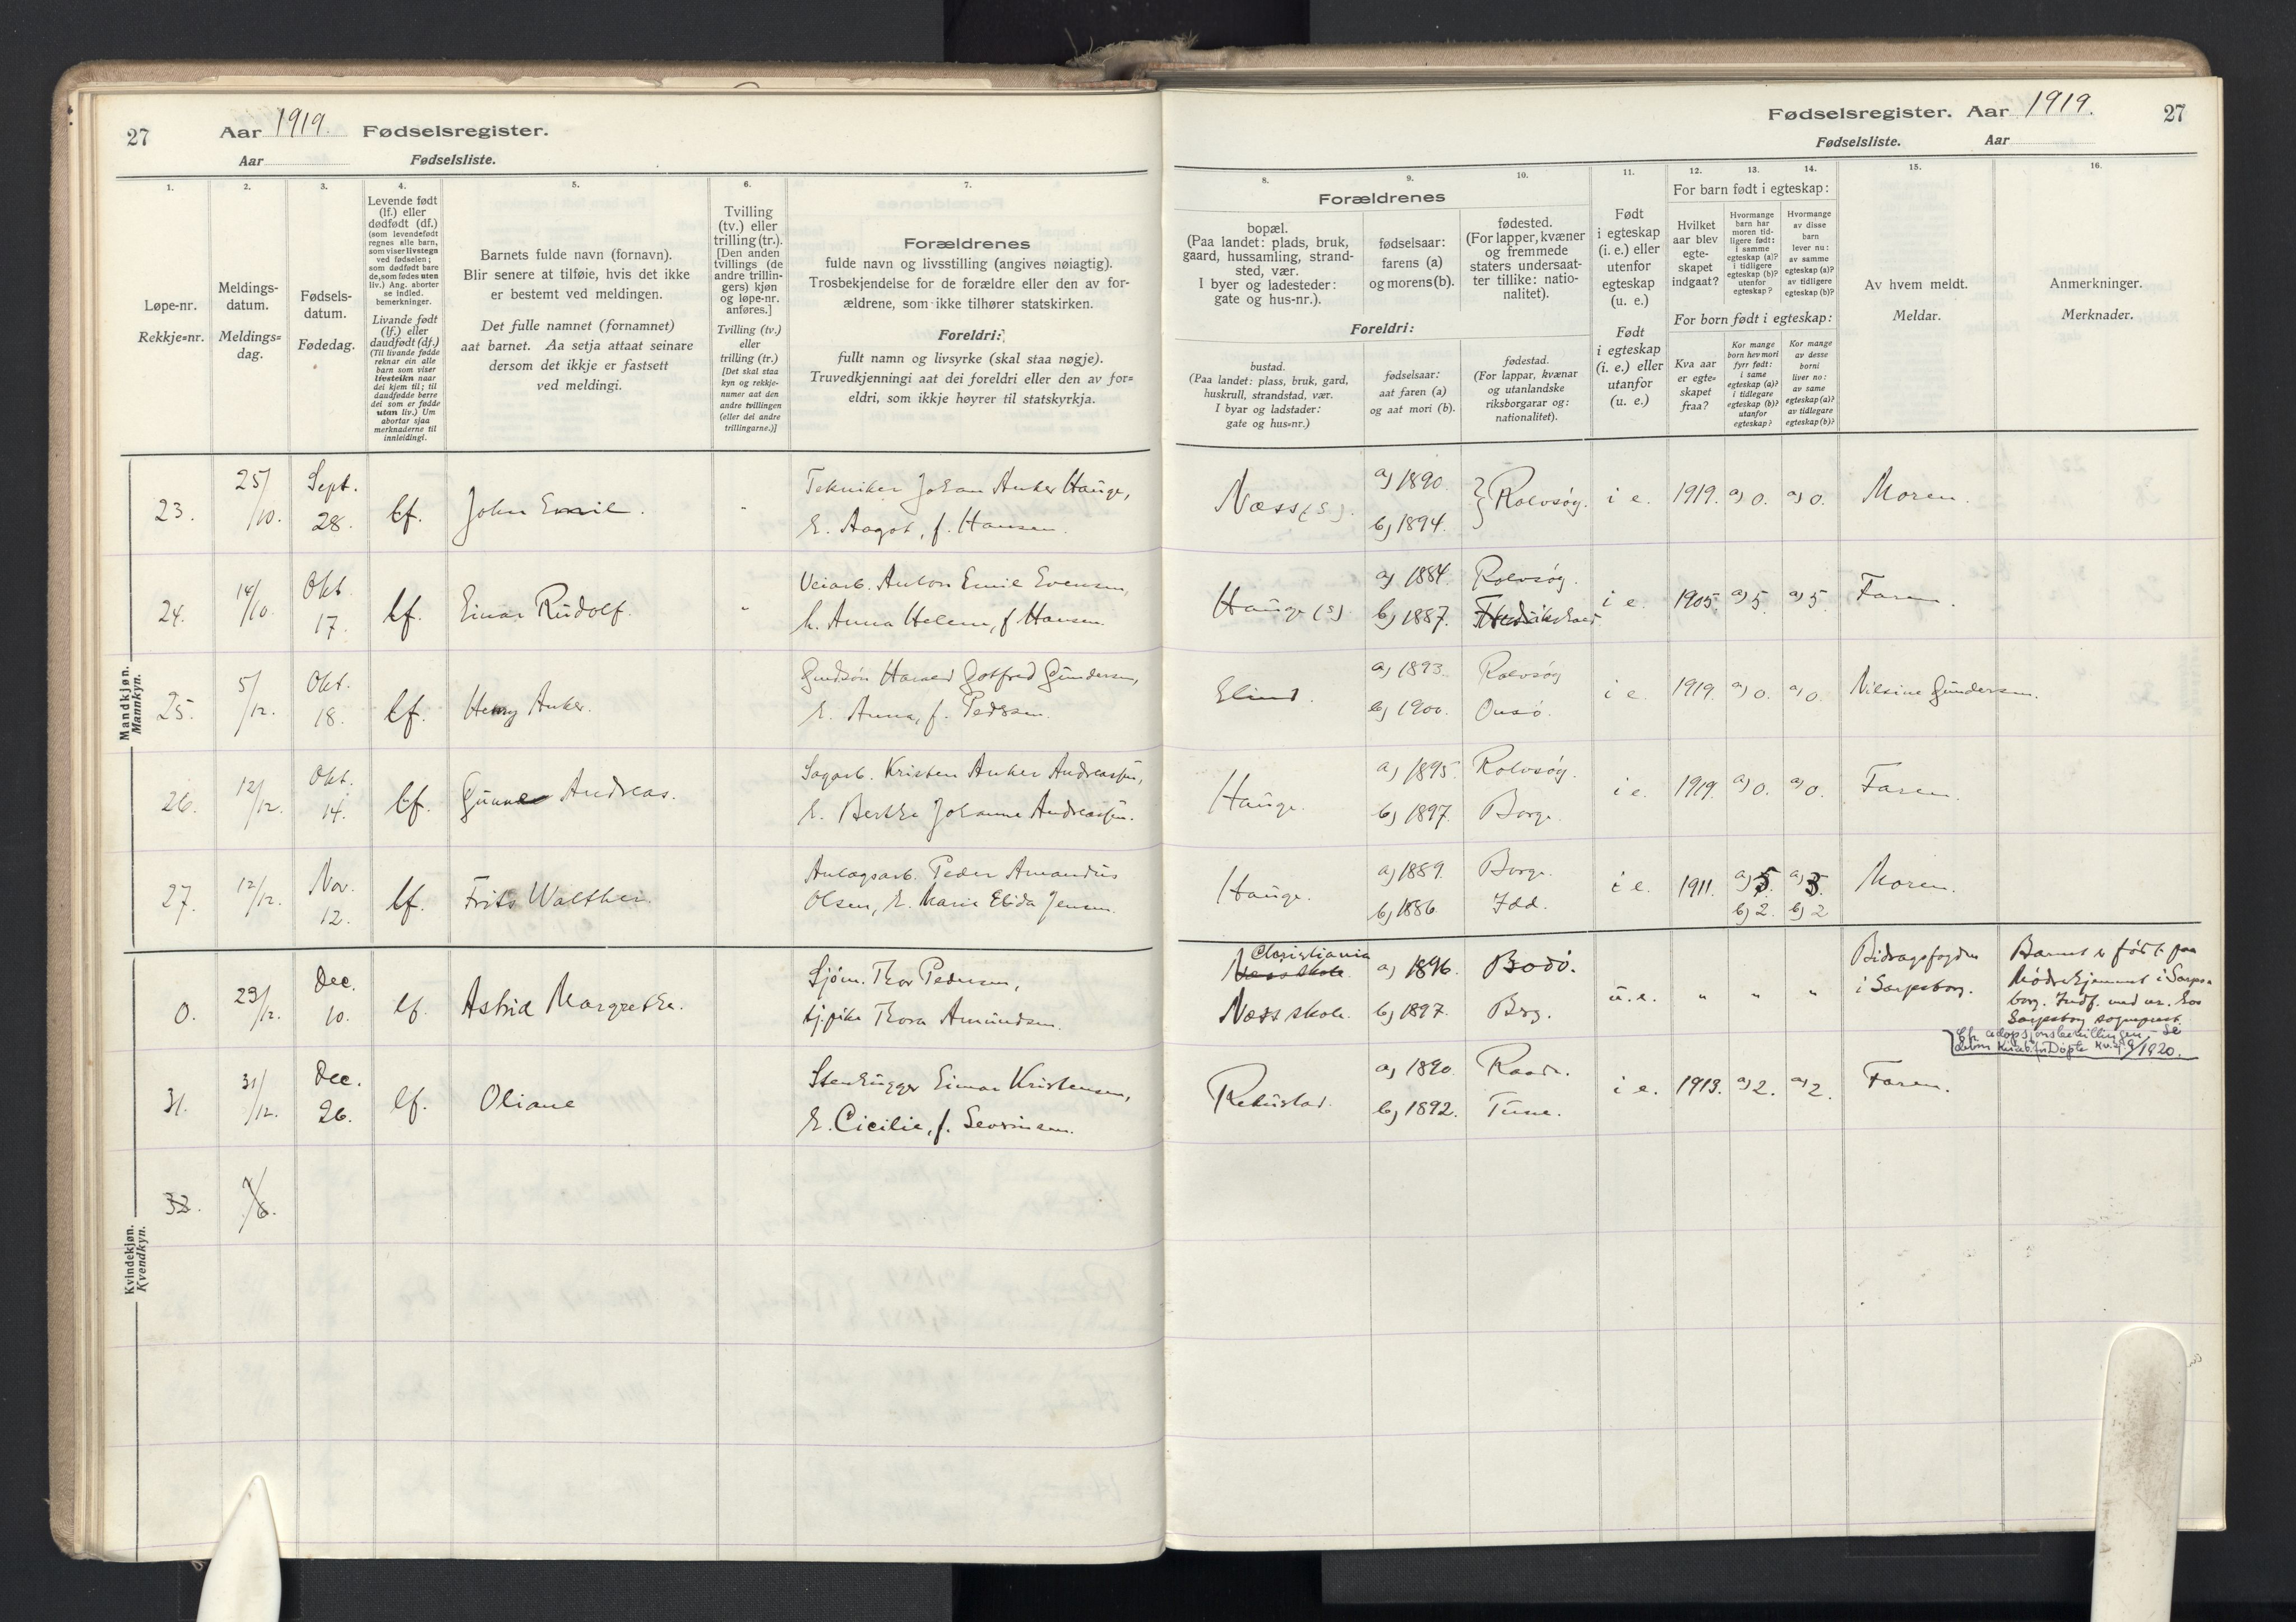 27
Aar 1919. Fødselsregister.
Aar
Fødselsliste.
1.
Løpe-nr.
Rekkje=nr.
2.
Meldings-
datum.
Meldings=
dag.
3.
Fødsels-
datum.
Fødedag.
4.
Levende født
(lf.) eller
dødfødt (df.)
(som levendefødt
regnes alle barn,
som viser livstegn
ved fødselen;
som dødfødt bare
de, som fødes uten
liv.) Ang. aborter
se indled.
bemerkninger.
Livande født
(lf.) eller
daudfødt (df.)
(Til livande fødde
reknar ein alle
barn som viser
livsteikn naar
dei kjem til; til
daudfødde berre
dei som er fødde
utan liv.) Um
abortar sjaa
merknaderne til
innleidingi.
5.
Barnets fulde navn (fornavn).
Blir senere at tilføie, hvis det ikke
er bestemt ved meldingen.
Det fulle namnet (fornamnet)
aat barnet. Aa setja attaat seinare
dersom det ikkje er fastsett
ved meldingi.
6.
Tvilling
(tv.) eller
trilling (tr.).
[Den anden
tvillings (de
andre trillin-
gers) kjøn
og løpe-nr.
anføres.]
Tvilling (tv.)
eller
trilling (tr.)
[Det skal staa
kyn og rekkje-
numer aat den
andre tvillingen
(eller dei andre
trillingarne.)]
7.
Forældrenes
fulde navn og livsstilling (angives nøiagtig).
Trosbekjendelse for de forældre eller den av for-
ældrene, som ikke tilhører statskirken.
Foreldri:
fullt namn og livsyrke (skal staa nøgje).
Truvedkjenningi aat dei foreldri eller den av for=
eldri, som ikkje høyrer til statskyrkja.
Fødselsregister. Aar 1919. 27
Fødselsliste. Aar
8.
Forældrenes
bopæl.
(Paa landet: plads, bruk,
gaard, hussamling, strand-
sted, vær.
I byer og ladesteder:
gate og hus-nr.).
Foreldri:
bustad.
(Paa landet: plass, bruk, gard,
huskrull, strandstad, vær.
I byar og ladstader:
gate og hus=nr.)
9.
fødselsaar:
farens (a)
og morens (b).
fødselsaar:
aat faren (a)
og aat mori (b).
10.
fødested.
(For lapper, kvæner
og fremmede
staters undersaat-
ter tillike: natio-
nalitet).
fødestad.
(For lappar, kvænar
og utanlandske
riksborgarar og:
nationalitet).
11.
Født
i egteskap
(i. e.) eller
utenfor
egteskap
(u. e.)
Født
i egteskap
(i. e.) eller
utanfor
(u. e.)
12. 13. 14.
For barn født i egteskap:
Hvilket
aar blev
egte-
skapet
indgaat?
Hvormange
barn har
moren tid-
ligere født:
i samme
egteskap (a)?
i tidligere
egteskap (b)?
utenfor
egteskap?
Hvormange
av disse
barn
lever nu:
av samme
egteskap (a)?
av tidligere
egteskap (b)?
For born født i egteskap:
Kva aar
er egte=
skapet
fraa?
Kor mange
born hev mori
fyrr født:
i same
egteskap (a)?
i tidlegare
egteskap (b)?
utanfor
egteskap?
Kor mange
av desse
borni
liver no:
av same
egteskap (a)?
av tidlegare
egteskap (b)?
15.
Av hvem meldt.
Meldar.
16.
Anmerkninger.
Merknader.
Mandkjøn.
Mannkyn.
23. 25/10. Sept. 28. lf. John Emil. " Tekniker Johan Anker Hauge,
h. Aagot, f. Hansen.
Næss (s). a) 1890. b) 1894. } Rolvsøy. i e. 1919. a) 0. a) 0. Moren.
24. 14/10. Okt. 17. lf. Einar Rudolf. " Veiarb. Anton Emil Evensen,
h. Anna Helene, f. Hansen.
Hauge (s) a) 1884. Rolvsøy. b) 1887. Fredrikstad i e. 1905. a) 5. a) 5. Faren.
25. 5/12. Okt. 18. lf. Henry Anker. Harald Gotfred Gundersen,
h. Anna, f. Pedersen.
a) 1893. Rolvsøy b) 1900. Onsø. i e. 1919. a) 0. a) 0. Nilsine Gundersen.
26. 12/12. Okt. 14. lf. Gunnar Andreas. Sagarb. Kristen Anker Andreassen,
h. Berthe Johanne Andreassen.
Hauge. a) 1895. Rolvsøy. b) 1897. Borge. i e. 1919. a) 0. a) 0. Faren.
27. 12/12. Nov. 12. lf. Frits Walther. Anlægsarb. Peder Amandus
Olsen, h. Marie Elida Jensen.
Hauge. a) 1889. Borge. b) 1886. Idd. i e. 1911. a) 5. b) 2. a) 3. b) 2 Moren.
Kvindekjøn.
Kvendkyn.
0. 29/12. Dec. 10. lf. Astrid Margrethe. Sjøm. Thor Pedersen,
tj.pike Thora Amundsen.
Christiania
Næss skole.
Næss skole. a) 1896. Bodø. b) 1897. Berg. u. e. " " " Bidragsfogden
i Sarpsborg.
Barnet er født paa
Mødrehjemmet i Sarps-
borg. Indf. med nr. hos
Sarpsborg sogneprest.
31. 31/12. Dec. 26. lf. Oliane Stenhugger Einar Kristensen,
h. Cicilie, f. Severinsen.
Rekustad. a) 1890. Raade. b) 1892. Tune. i e. 1913. a) 2. a) 2. Faren.
32.